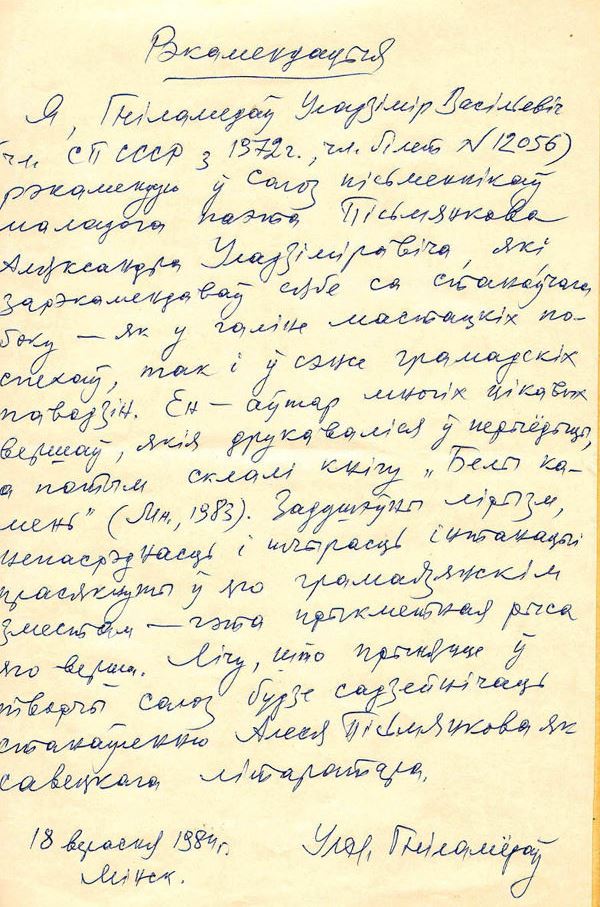 Рэкамендацыя
Я, Гніламёдаў Уладзімір Васільевіч
(чл. СП СССР з 1972 г., чл. білет N 12056)
рэкамендую ў Саюз пісьменнікаў
маладога паэта Пісьмянкова
Аляксандра Уладзіміравіча, які
зарэкамендаваў сябе са станоўчага
боку — як у галіне мастацкіх по-
спехаў, так і ў сэнсе грамадскіх
паводзін. Ён — аўтар многіх цікавых
вершаў, якія друкаваліся ў перыёдыцы,
а потым склалі кнігу „Белы ка-
мень" (Мн., 1983). Задушэўны лірызм,
непасрэднасць і шчырасць інтанацыі
прасякнуты ў яго грамадзянскім
зместам — гэта прыкметная рыса
яго верша. Лічу, што прыняцце ў
творчы саюз будзе садзейнічаць
станаўленню Алеся Пісьмянкова як
савецкага літаратара.
18 верасня 1984 г. Улад. Гніламёдаў
Мінск.